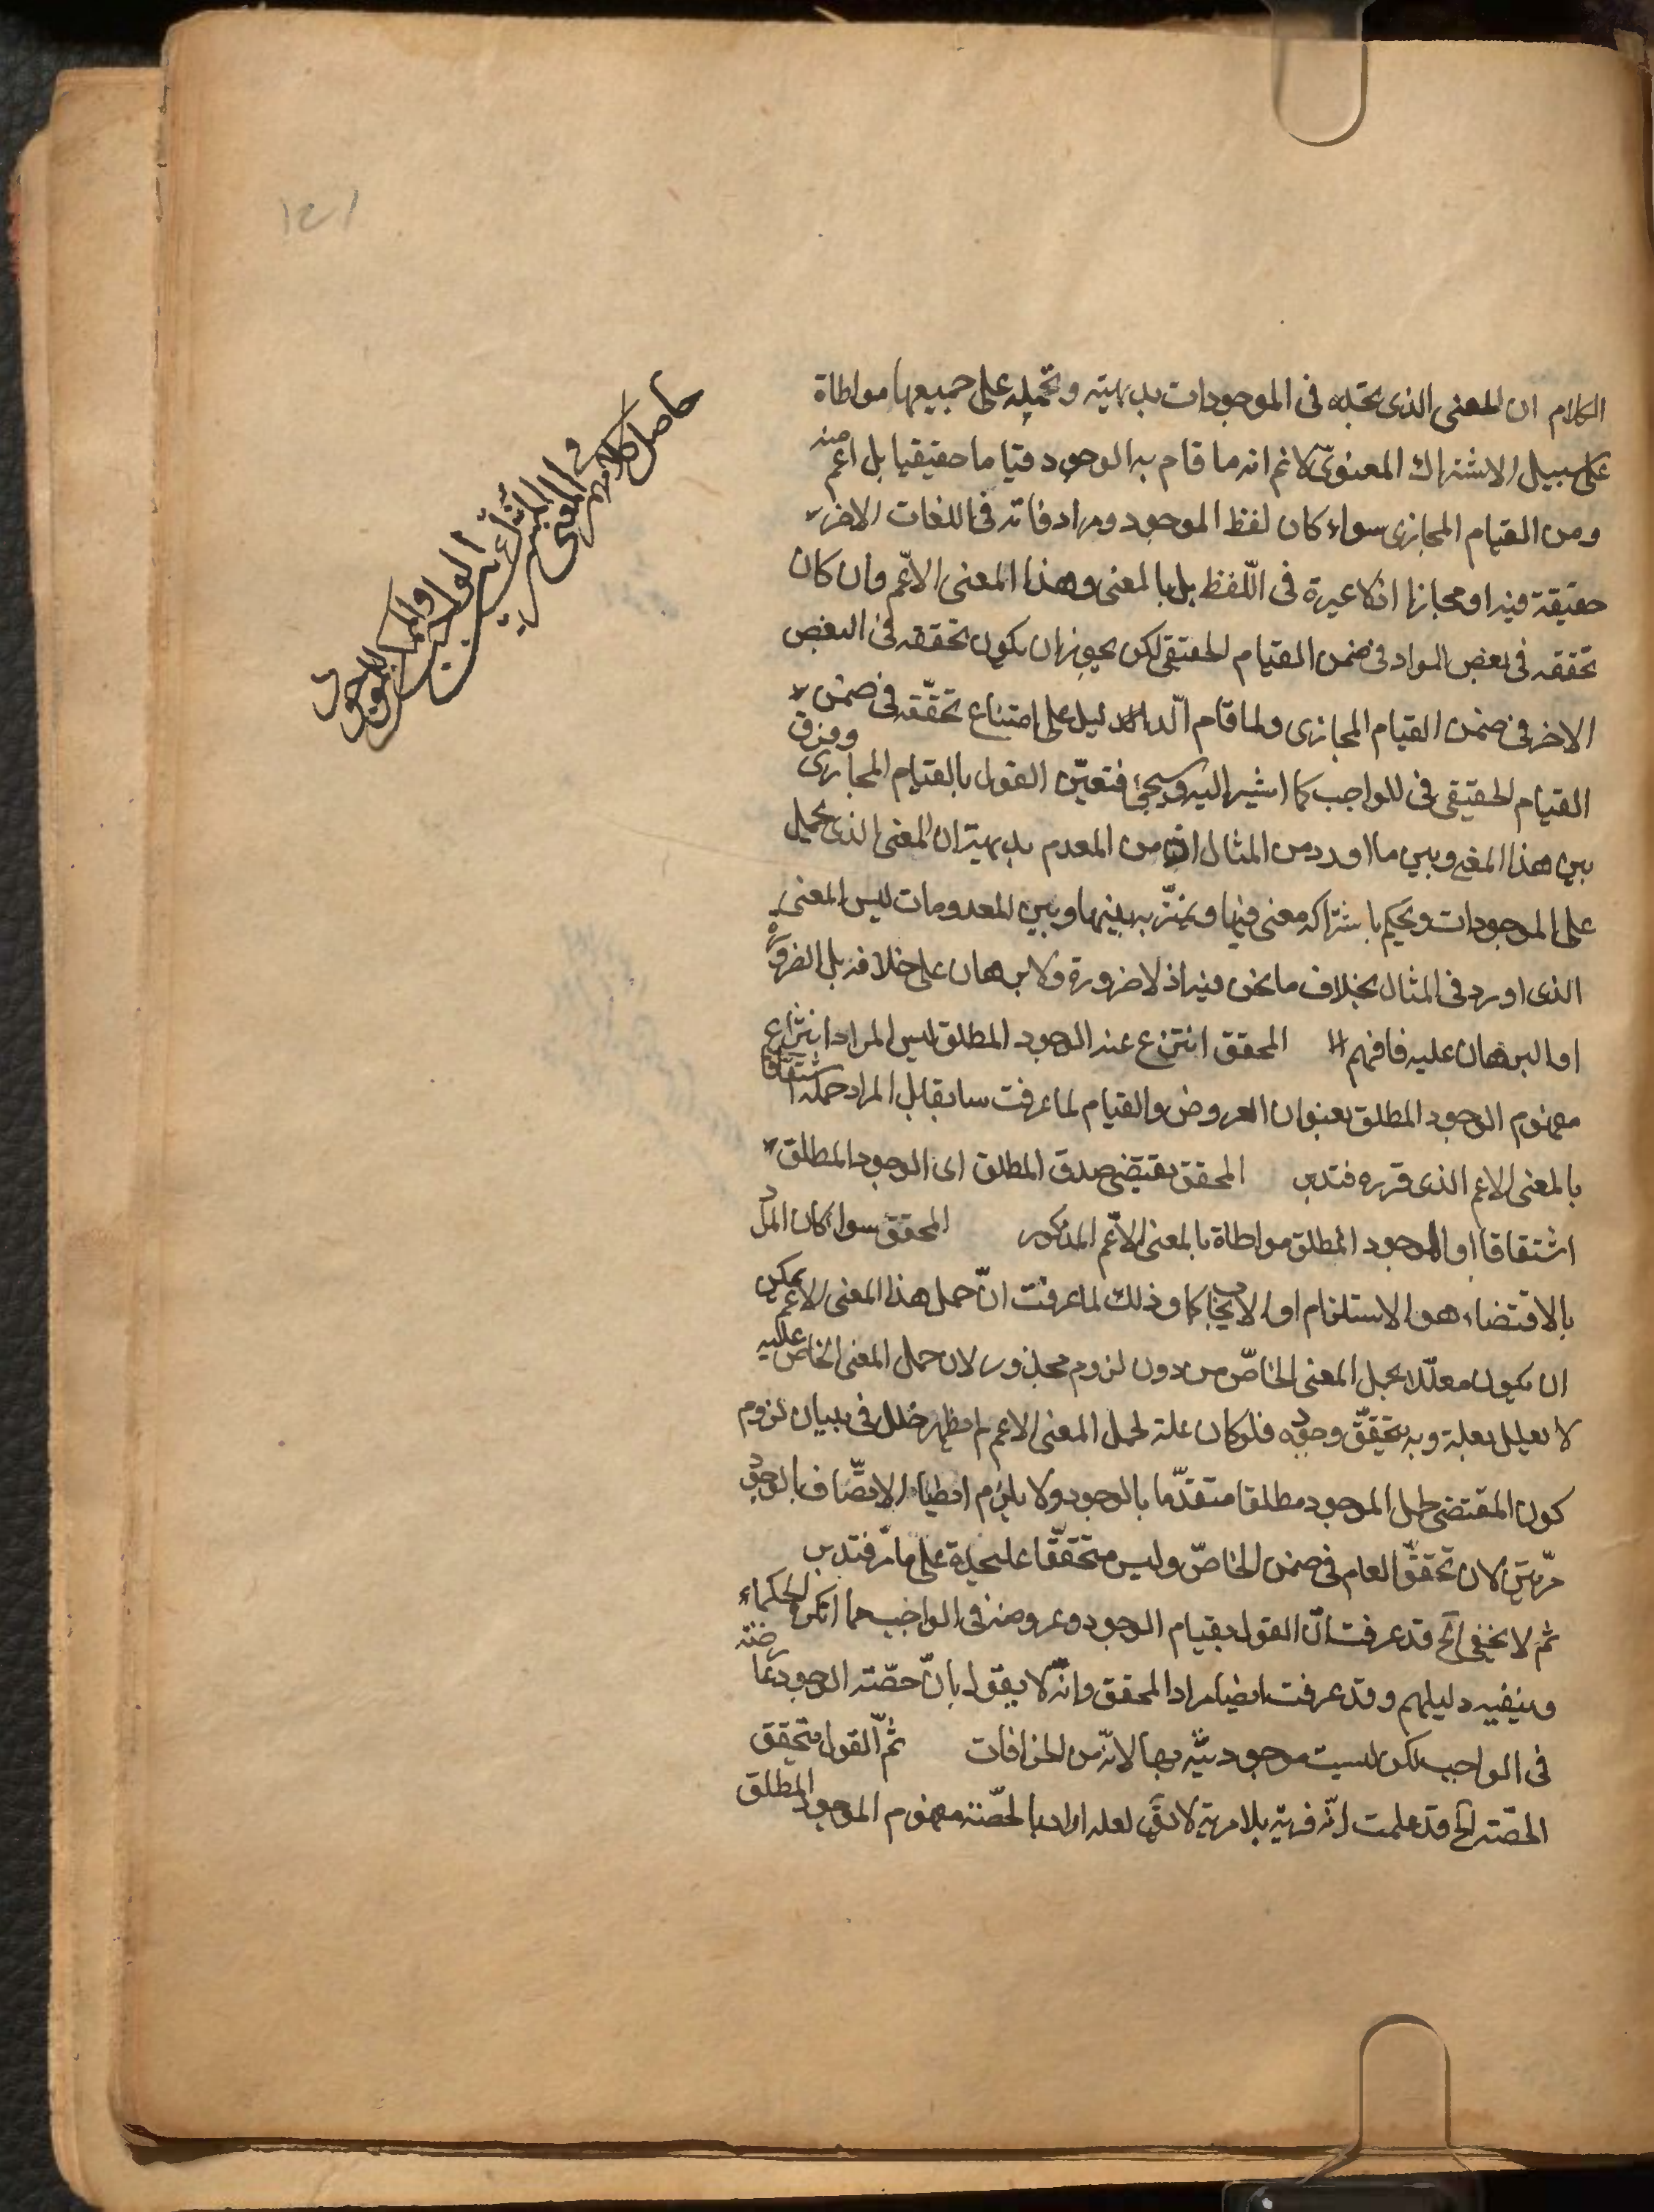 الكلام ان المعنى الذى تجده فى الموجودات بديهية وتحمله على جميعها مواطاة
على سبيل الاشتراك المعنوى لا نم انه ما قام به الوجود قياما حقيقيا بل اعم منه
ومن القيام المجازى سواء كان لفظ الموجود ومرادفاته فى اللغات الاخر
حقيقة فيه او مجازا اذ لا عبرة فى اللفظ بل بالمعنى وهذا المعنى الاعم وان كان
تحققه فى بعض المواد فى ضمن القيام الحقيقى لكن يجوز ان يكون تحققه فى البعض
الاخر فى ضمن القيام المجازى ولما قام الدليل على امتناع تحققه فى ضمن
القيام الحقيقى فى الواجب كما اشير اليه وسيجئ فتعين القول بالقيام المجازى وفرق
بين هذا المعنى وبين ما اورد من المثال اذ من المعدم بديهية ان المعنى الذى يحمل
على الموجودات ويحكم باشتراكه معنى فيها ويميز به بينها وبين المعدومات ليس المعنى
الذى اورد فى المثال بخلاف ما نحن فيه اذ لا ضرورة ولا برهان على خلافه بل الضرورة
او البرهان عليه فافهم المحقق انتزع عنه الوجود المطلق ليس المراد انتزاع
مفهوم الوجود المطلق بعنوان العروض والقيام لما عرفت سابقا بل المراد حمله اشتقاقا
بالمعنى الاعم الذى قرره فتدبر المحقق يقتضى صدق المطلق اى الوجود المطلق
اشتقاقا او الموجود المطلق مواطاة بالمعنى الاعم المذكور المحقق سواء كان المراد
بالاقتضاء هو الاستلزام او الايجاب كما وذلك لما عرفت ان حمل هذا المعنى الاعم يمكن
ان يكون معللا بحمل المعنى الخاص من دون لزوم محذور لان حمل المعنى الخاص عليه
لا يعلل بعلة وبه يتحقق وجوده فلو كان علة لحمل المعنى الاعم لم يظهر خلل فى بيان لزوم
كون المقتضى لحمل الموجود مطلقا متقدما بالوجود ولا يلزم ايضا الاتصاف بالوجود
مرتين لان تحقق العام فى ضمن الخاص وليس متحققا عليحدة على ما مر فتدبر
ثم لا يخفى الخ قد عرفت ان القول بقيام الوجود وعروضه فى الواجب مما انكره الحكماء
وينفيه دليلهم وقد عرفت ايضا مراد المحقق وانه لا يقول بان حصة الوجود عارضة
فى الواجب لكن ليست موجوديته بها لانه من الخرافات ثم القول بتحقق
الحصة الخ قد علمت انه فرية بلا مرية لا يق لعله اراد بالحصة مفهوم الموجود المطلق
حاصل كلامهم
فى المعنى
الواجب
الوجود
١٤١